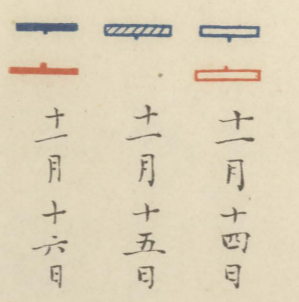 十一月十四日
十一月十五日
十一月十六日